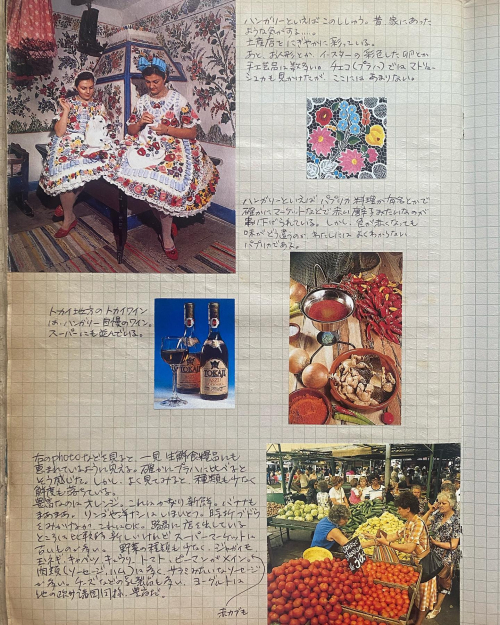 ハンガリーといえばこのししゅう。昔、家にあった
ような気がする……。
土産店をにぎやかに彩っている。
あと、お人形とか、イースターの彩色した卵とか
手工芸品は数多い。チェコ(プラハ)ではマトリョー
シュカも見かけたが、ここにはあまりない。
ハンガリーといえばパプリカ料理が有名とかで
確かにマーケットなどで赤い唐辛子みたいなのが
吊り下げられている。しかし、色が赤くなっても
味がどう違うのか、わたしにはよくわからない
パプリカである。
トカイ地方のトカイワイン
は、ハンガリー自慢のワイン。
スーパーにも並んでいる。
TOKAJI
TOKAJI
右のphotoなどを見ると、一見、生鮮食糧品にも
恵まれているように見える。確かにプラハに比べると
そう感じた。しかし、よく見てみると、種類も少なく
鮮度も落ちている。
豊富なのはオレンジ。これはかなり新鮮。バナナも
まあまあ。リンゴや洋ナシはいまひとつ。時折ブドウ
をみかけるがこれはOK。路面に店を出している
ところは比較的新しいけれど、スーパーマーケットに
古いものが多い。野菜の種類も少なく、ジャガイモ、
玉ネギ、キャベツ、キュウリ、トマト、ピーマンがメイン。
肉類(ソーセージ、ハム)は多く、サラミみたいなソーセージ
が多い。チーズなどの乳製品も多い。ヨーグルトは
他の欧州諸国同様、豊富だ。
赤カブも